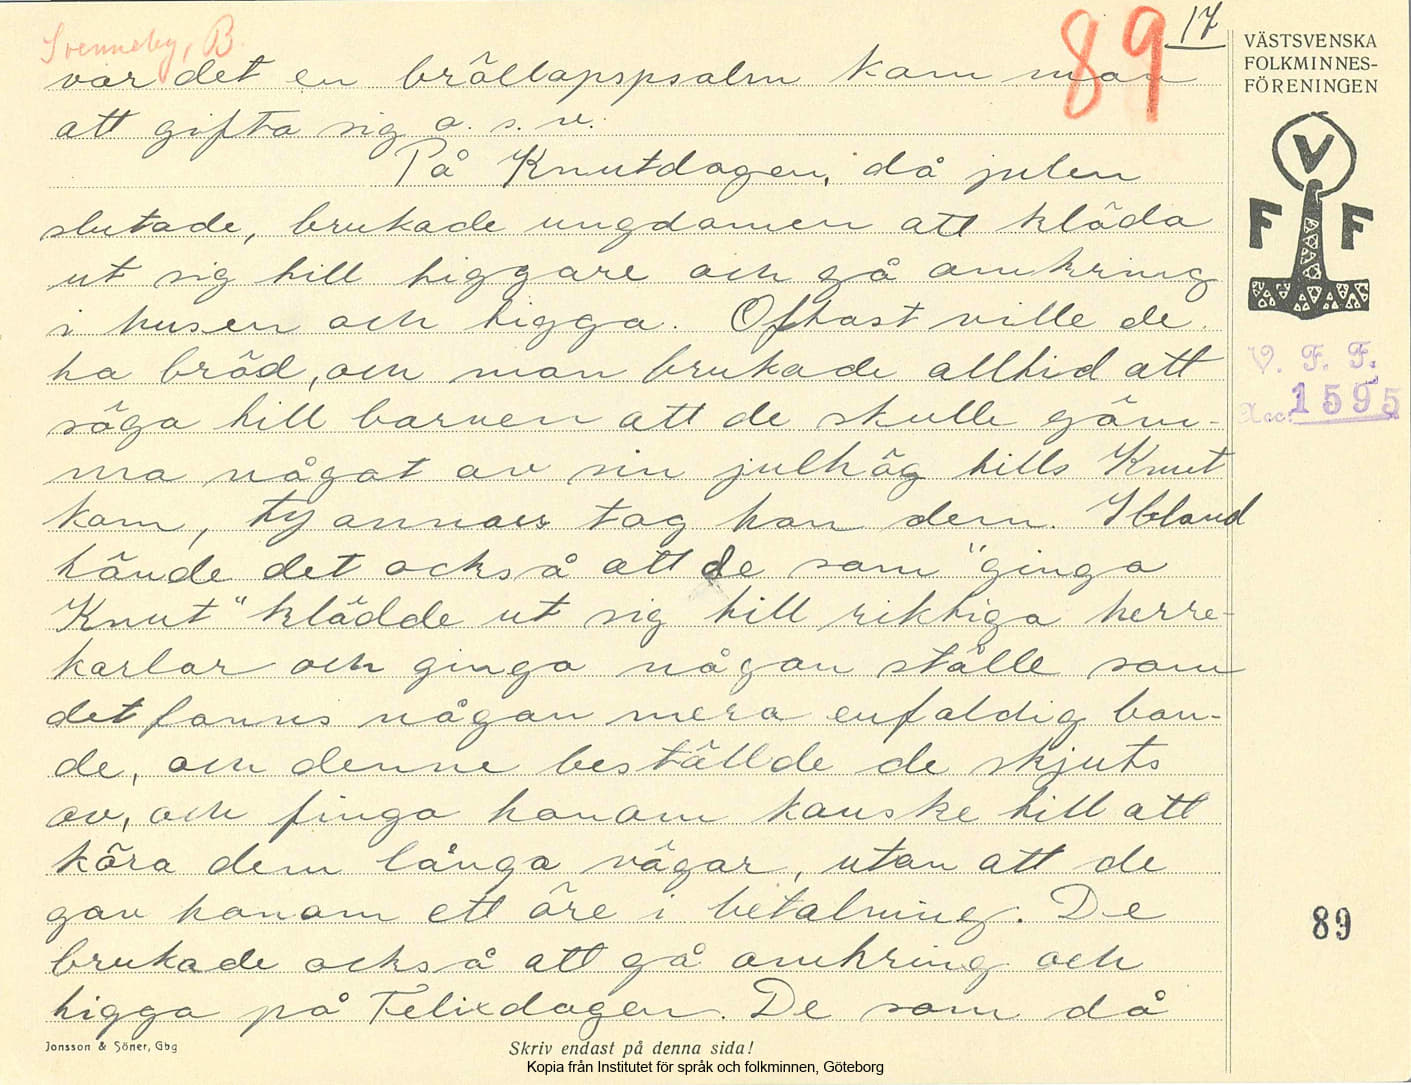 Svenneby, B.
89
17
var det en bröllopspsalm kom man
att gifta sig o. s. v.
På Knutdagen, då julen
slutade, brukade ungdomen att kläda
ut sig till tiggare och gå omkring
i husen och tigga. Oftast ville de
ha bröd, och man brukade alltid att
säga till barnen att de skulle göm-
ma något av sin julhög tills Knut
kom, ty annars tog han dem. Ibland
hände det också att de som "gingo
Knut" klädde ut sig till riktiga herre-
karlar och gingo någon ställe som
det fanns någon mera enfaldig bon-
de, och denne beställde de skjuts
av, och fingo honom kanske till att
köra dem långa vägar, utan att de
gav honom ett öre i betalning. De
brukade också att gå omkring och
tigga på Felixdagen. De som då
VÄSTSVENSKA
FOLKMINNES-
FÖRENINGEN
V
F F
V. F. F.
Acc. 1595
89
Jonsson & Söner, Gbg
Skriv endast på denna sida!
Kopia från Institutet för språk och folkminnen, Göteborg